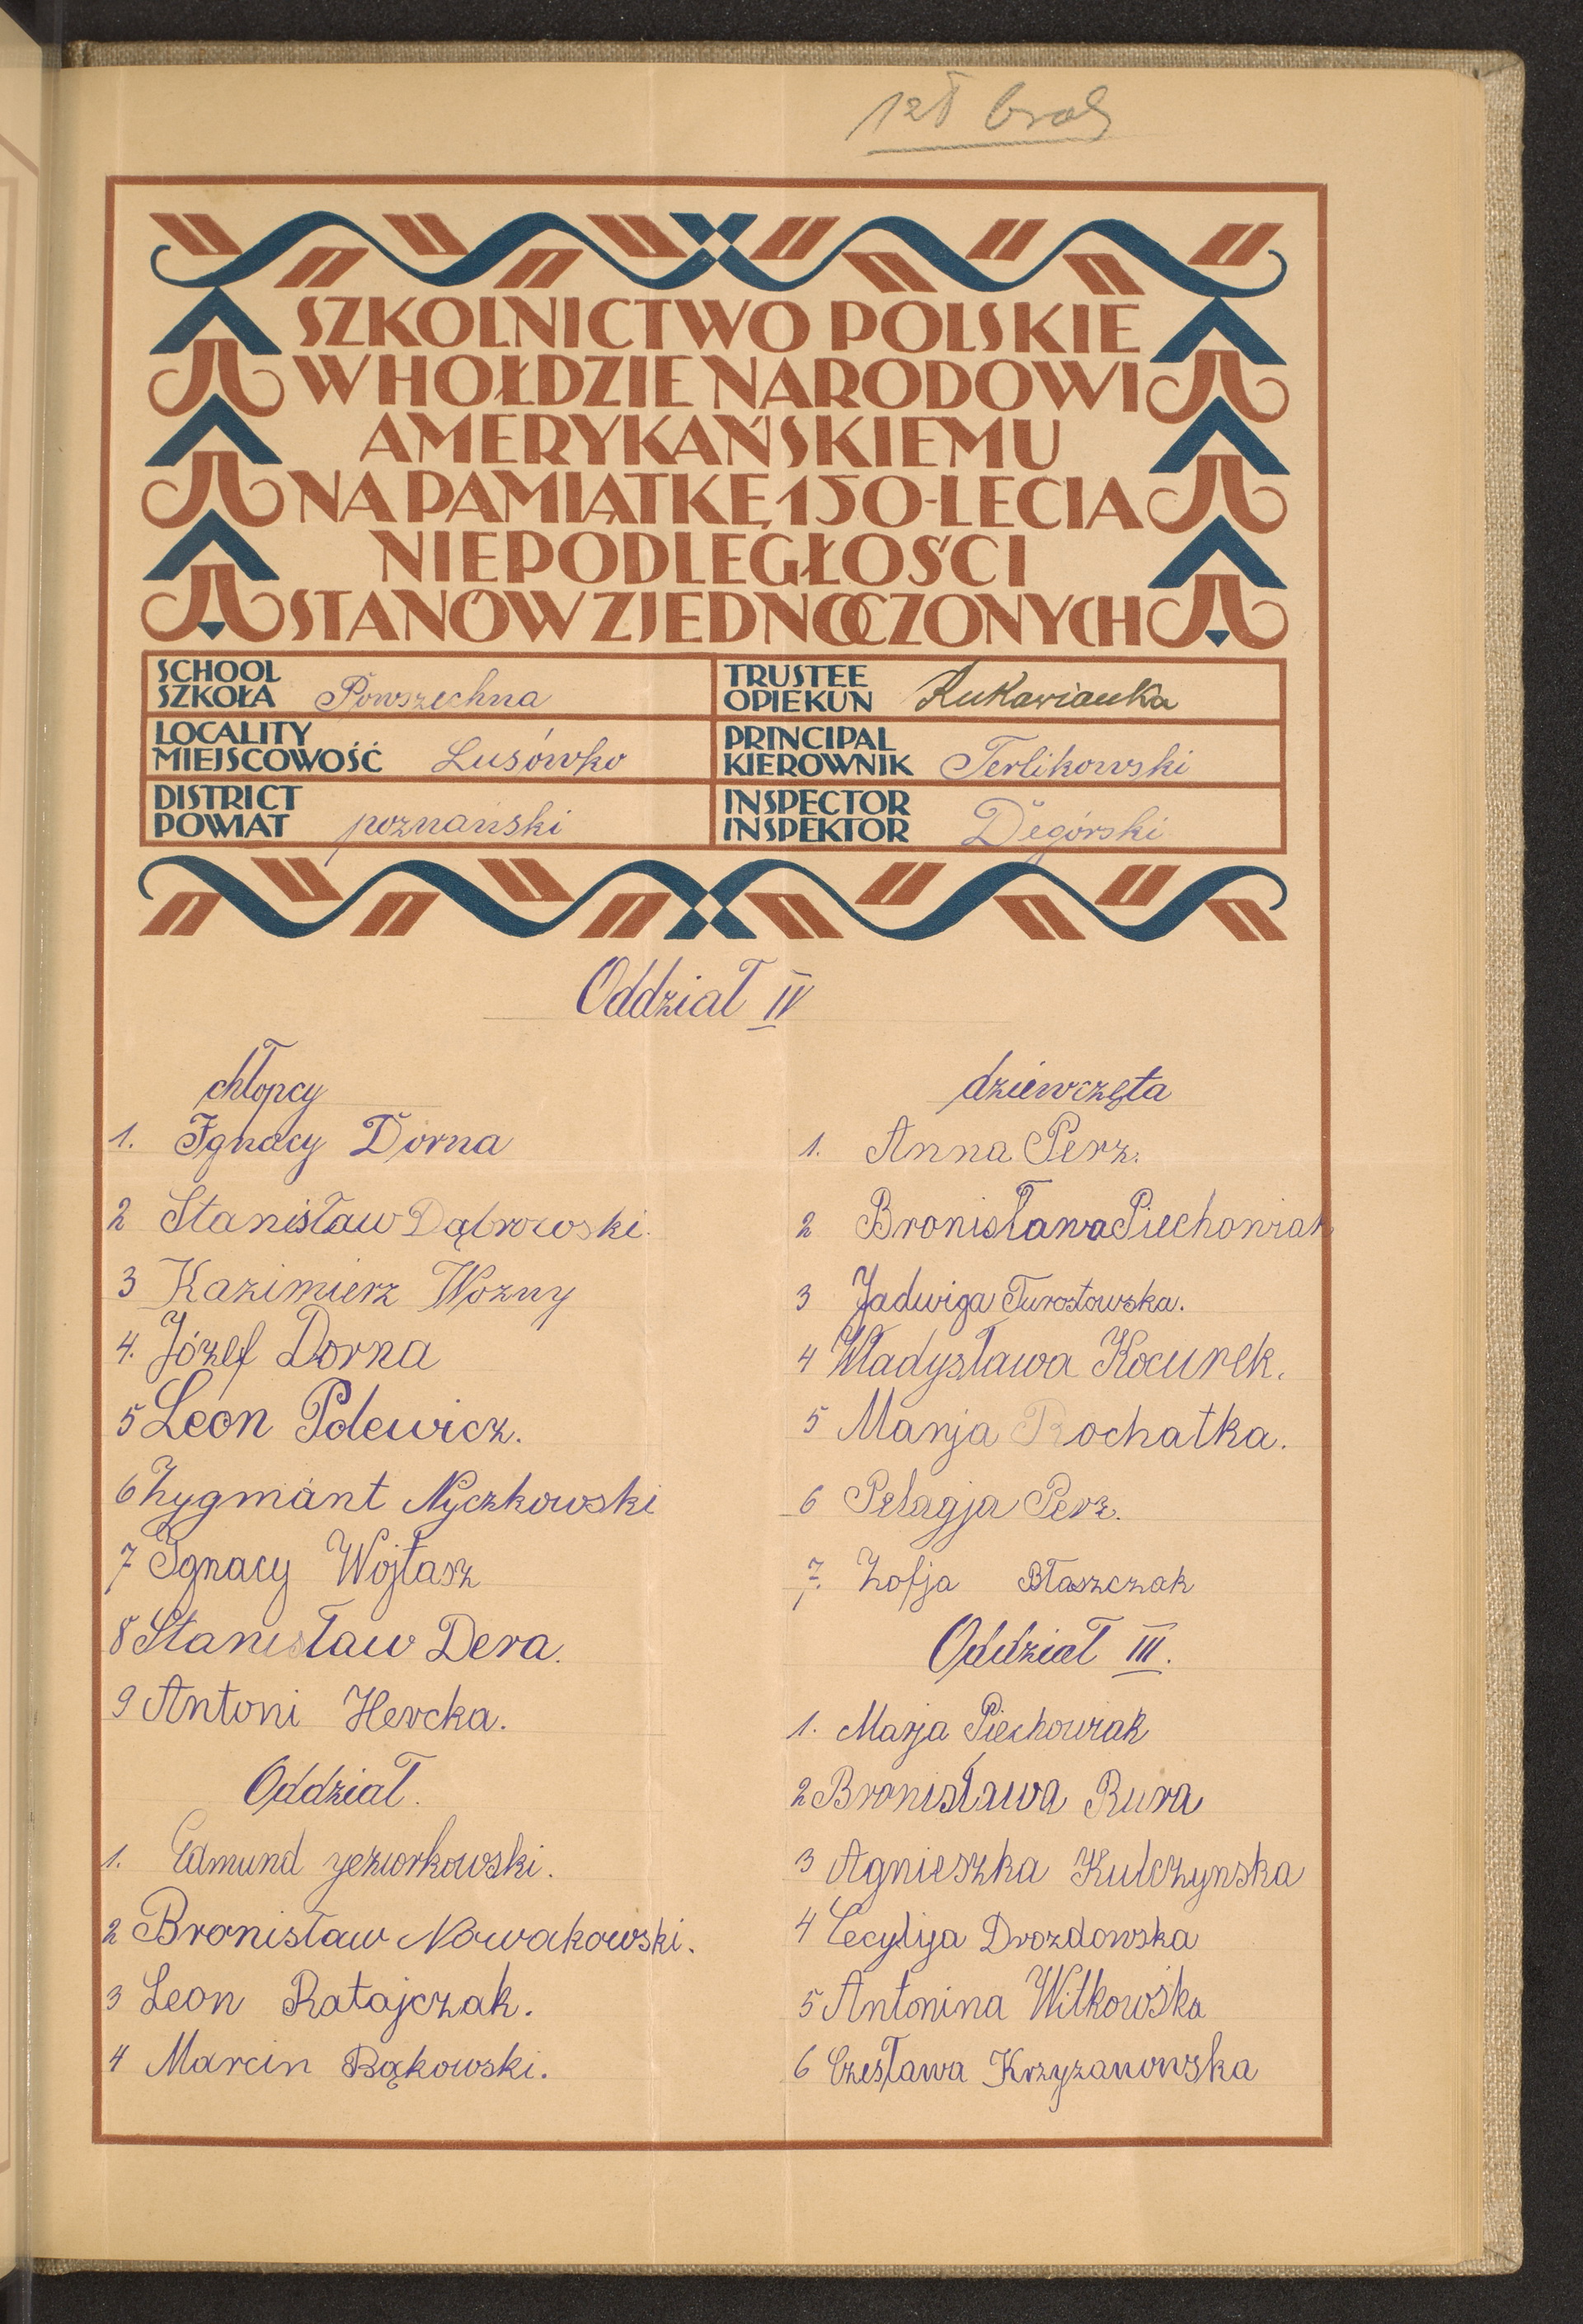 SZKOLNICTWO POLSKIE
W HOŁDZIE NARODOWI
AMERYKAŃSKIEMU
NA PAMIĄTKĘ 150-LECIA
NIEPODLEGŁOŚCI
STANÓW ZJEDNOCZONYCH
SCHOOL
SZKOŁA Powszechna
TRUSTEE
OPIEKUN
LOCALITY
MIEJSCOWOŚĆ Lusówko
PRINCIPAL
KIEROWNIK Terlikowski
DISTRICT
POWIAT poznański
INSPECTOR
INSPEKTOR Degórski
Oddział IV
chłopcy
1. Ignacy Dorna
2 Stanisław Dąbrowski.
3 Kazimierz Wozny
4. Józef Dorna
5 Leon Polewicz.
6 Zygmánt Nyczkowski
7 Ignacy Wojtasz
8 Stanisław Dera.
9 Antoni Hercka.
Oddział.
1. Edmund yeziorkowski.
2 Bronisław Nowakowski.
3 Leon Ratajczak.
4 Marcin Bąkowski.
dziewczęta
1. Anna Perz.
2 Bronisława Piechowiak
3 Jadwiga Turostowska.
4 Władysława Kocurek.
5 Marja Rochatka.
6 Pelagja Perz.
7. Zofja Błaszczak
Oddział III.
1. Marja Piechowiak
2 Bronisława Rura
3 Agnieszka Kulczynska
4 Cecylija Drozdowska
5 Antonina Witkowska
6 Czesława Krzyzanowska